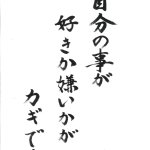 自分の事が
好きか嫌いかが
カギで